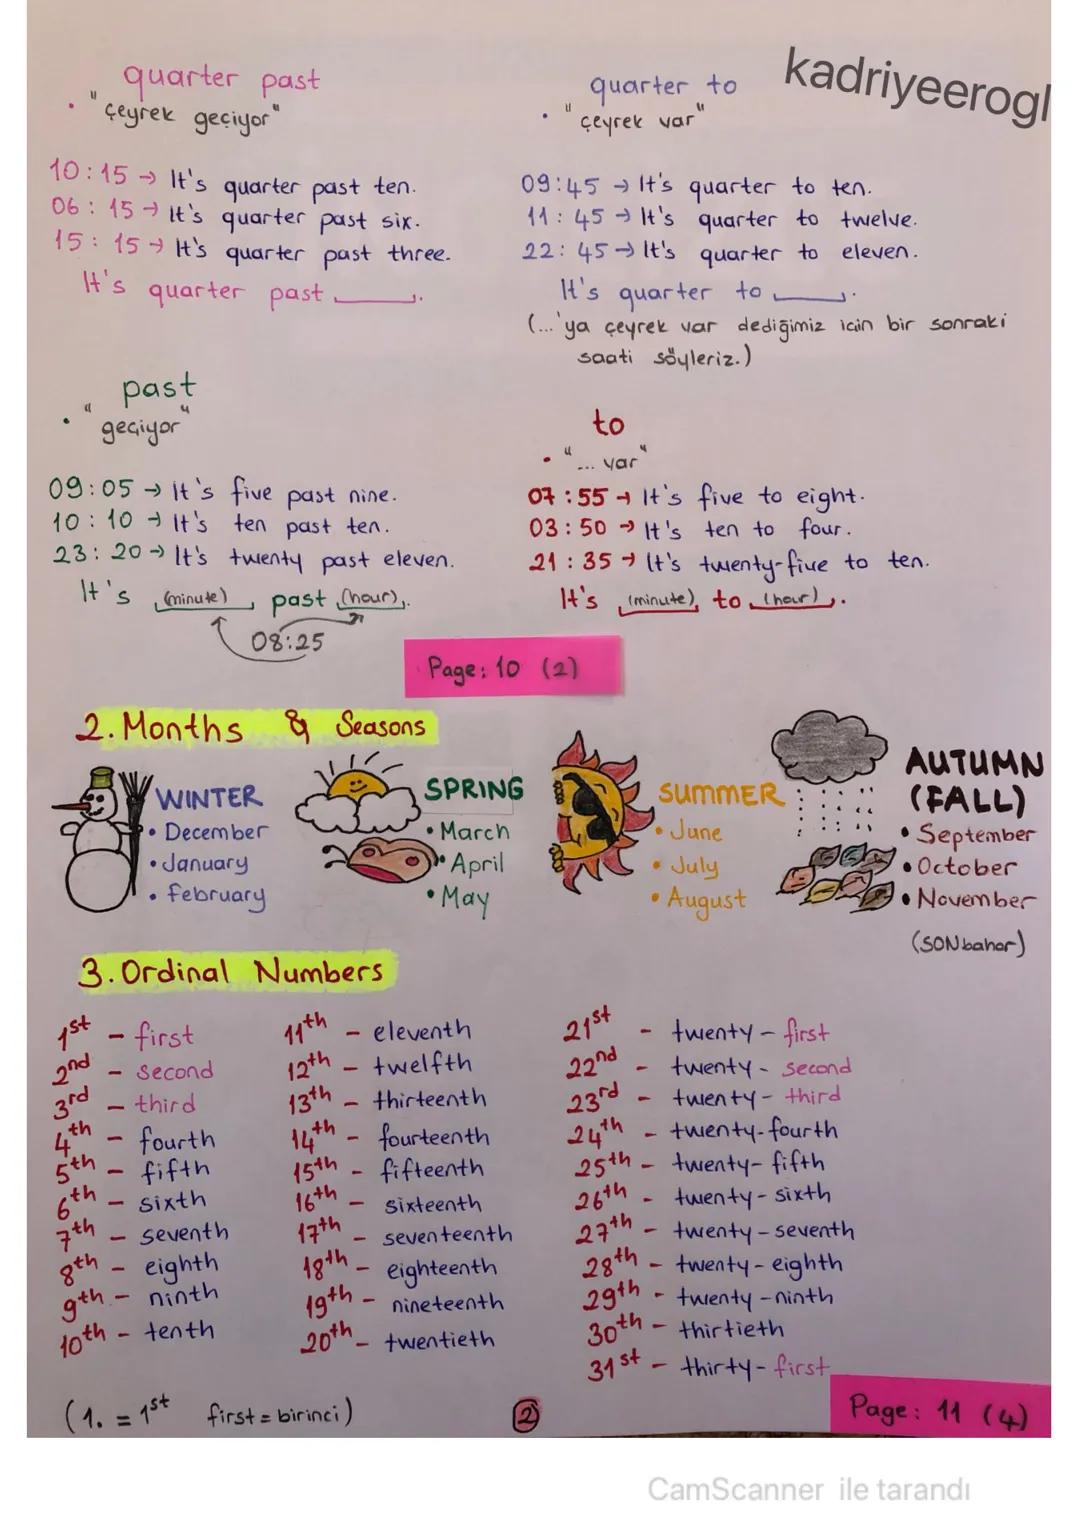 quarter past
• "çeyrek geçiyor"
10:15 → It's quarter past ten.
06:15 → It's quarter past six.
15:15 → It's quarter past three.
It's quarter past ____.
quarter to
• "çeyrek var"
kadriyeerogl
09:45 → It's quarter to ten.
11:45 → It's quarter to twelve.
22:45 → It's quarter to eleven.
It's quarter to ____.
(...'ya çeyrek var dediğimiz icin bir sonraki
saati söyleriz.)
past
• "geçiyor"
09:05 → It's five past nine.
10:10 → It's ten past ten.
23:20 → It's twenty past eleven.
It's (minute) past (hour).
08:25
to
• "... var"
07:55 → It's five to eight.
03:50 → It's ten to four.
21:35 → It's twenty-five to ten.
It's (minute) to (hour).
Page: 10 (2)
2. Months & Seasons
WINTER
• December
• January
• February
SPRING
• March
• April
• May
SUMMER
• June
• July
• August
AUTUMN
(FALL)
• September
• October
• November
(SONbahar)
3. Ordinal Numbers
1st - first
2nd - second
3rd - third
4th - fourth
5th - fifth
6th - sixth
7th - seventh
8th - eighth
9th - ninth
10th - tenth
11th - eleventh
12th - twelfth
13th - thirteenth
14th - fourteenth
15th - fifteenth
16th - sixteenth
17th - seventeenth
18th - eighteenth
19th - nineteenth
20th - twentieth
21st - twenty-first
22nd - twenty-second
23rd - twenty-third
24th - twenty-fourth
25th - twenty-fifth
26th - twenty-sixth
27th - twenty-seventh
28th - twenty-eighth
29th - twenty-ninth
30th - thirtieth
31st - thirty-first
(1. = 1st first = birinci)
2
Page: 11 (4)
CamScanner ile tarandı